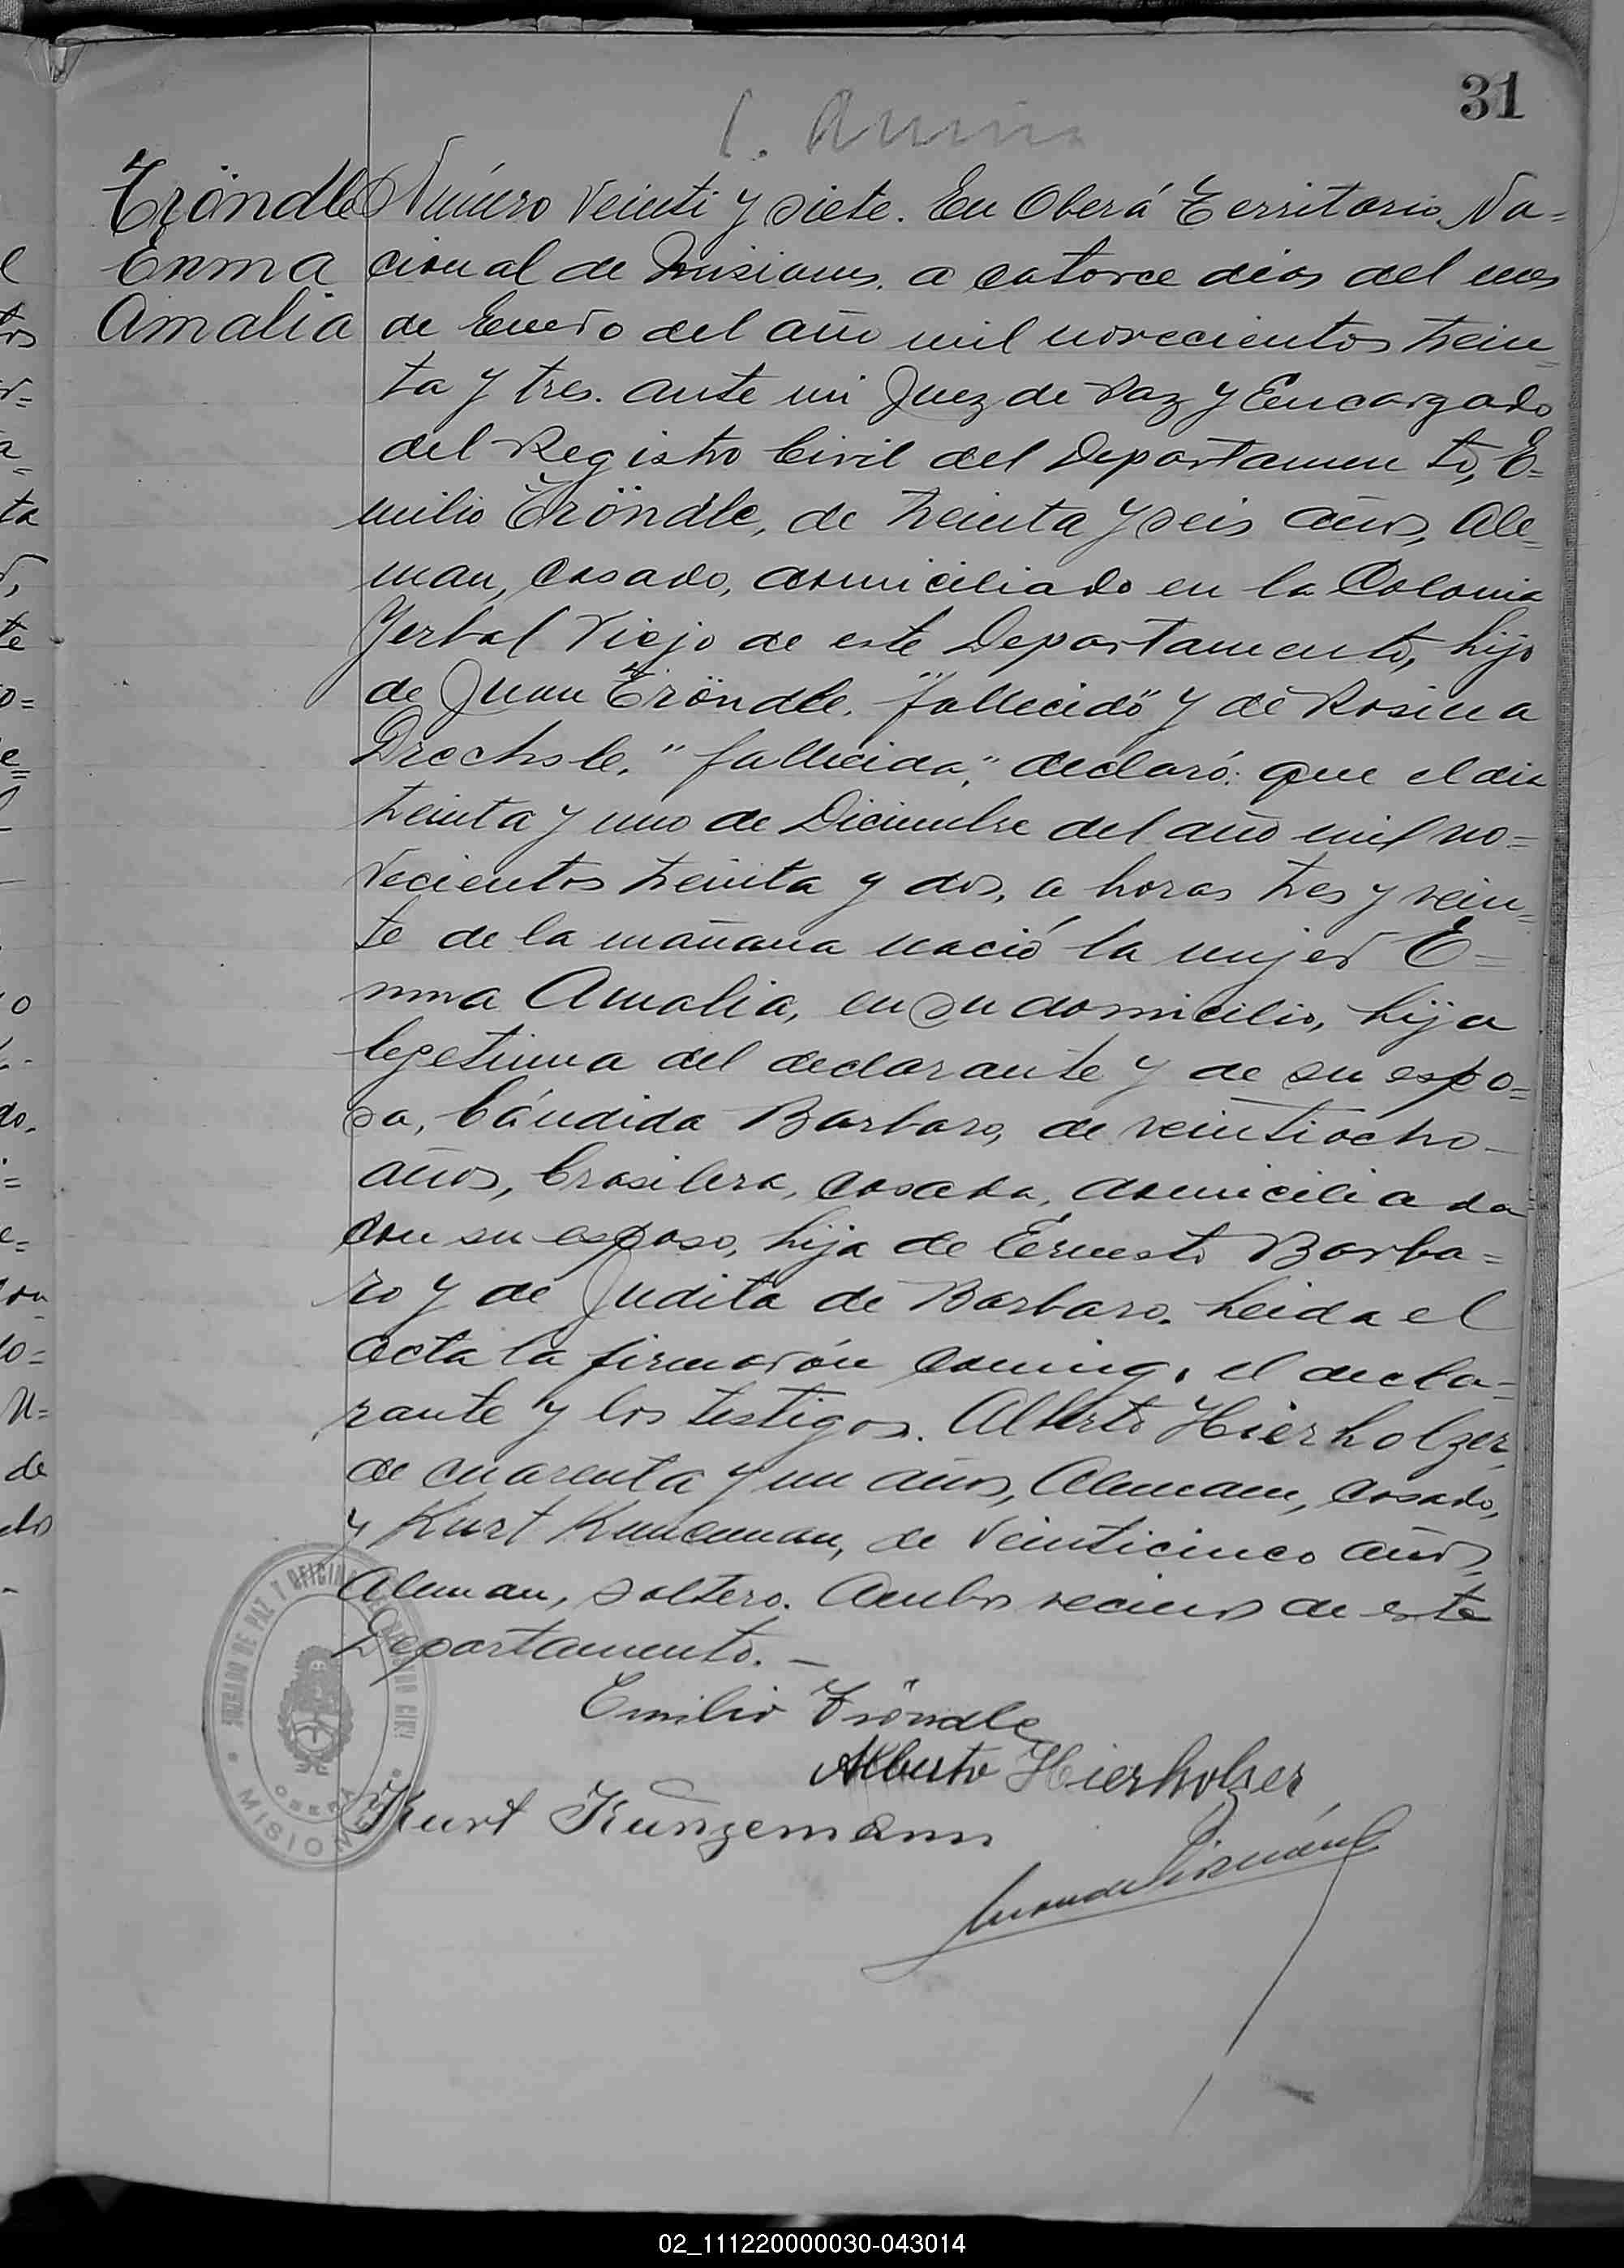 31
Tröndle
Enma
Amalia
Número Veinti y siete. En Oberá Territorio Na=
cional de Misiones, a catorce dias del mes
de Enero del año mil novecientos trein=
ta y tres. ante mi Juez de Paz y Encargado
del Registro Civil del Departamento, E=
milio Tröndle, de treinta y seis años, Ale=
man, casado, domiciliado en la Colonia
Yerbal Viejo de este Departamento, hijo
de Juan Tröndle. "fallecido" y de Rosina
Drechsle. "fallecida", declaró: que el dia
treinta y uno de Diciembre del año mil no=
vecientos treinta y dos, a horas tres y vein=
te de la mañana nació la mujer E=
nma Amalia, en su domicilio, hija
legetima del declarante y de su espo=
sa, Cándida Barbaro, de veintiocho
años, brasilera, casada, domiciliada
con su esposo, hija de Ernesto Barba=
ro y de Judita de Barbaro. Leida el
acta la firmarón conmigo, el decla=
rante y los testigos. Alberto Hierholzer,
de cuarenta y un años, Aleman, casado,
y Kurt Kunceman, de veinticinco años,
Aleman, soltero. Ambos vecinos de este
Departamento. —
Emilio Tröndle
Alberto Hierholzer
Kurt Kunzemann
JUZGADO DE PAZ Y OFICINA DEL REGISTRO CIVIL
OBERA
MISIONES
02_111220000030-043014